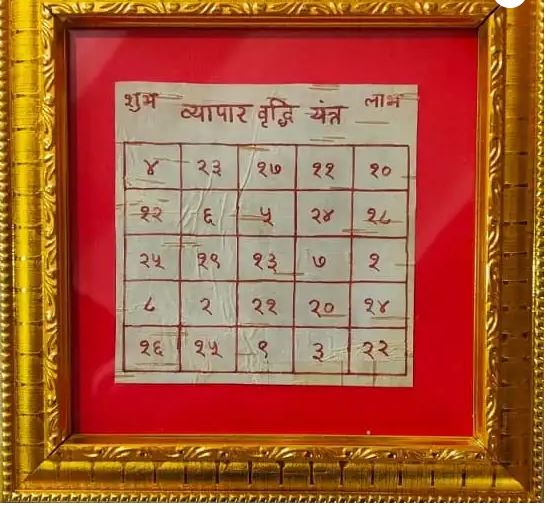 शुभ व्यापार वृद्धि यंत्र लाभ
४ २३ १७ ११ १०
१२ ६ ५ २४ १८
२५ १९ १३ ७ १
८ २ २१ २० १४
१६ १५ ९ ३ २२